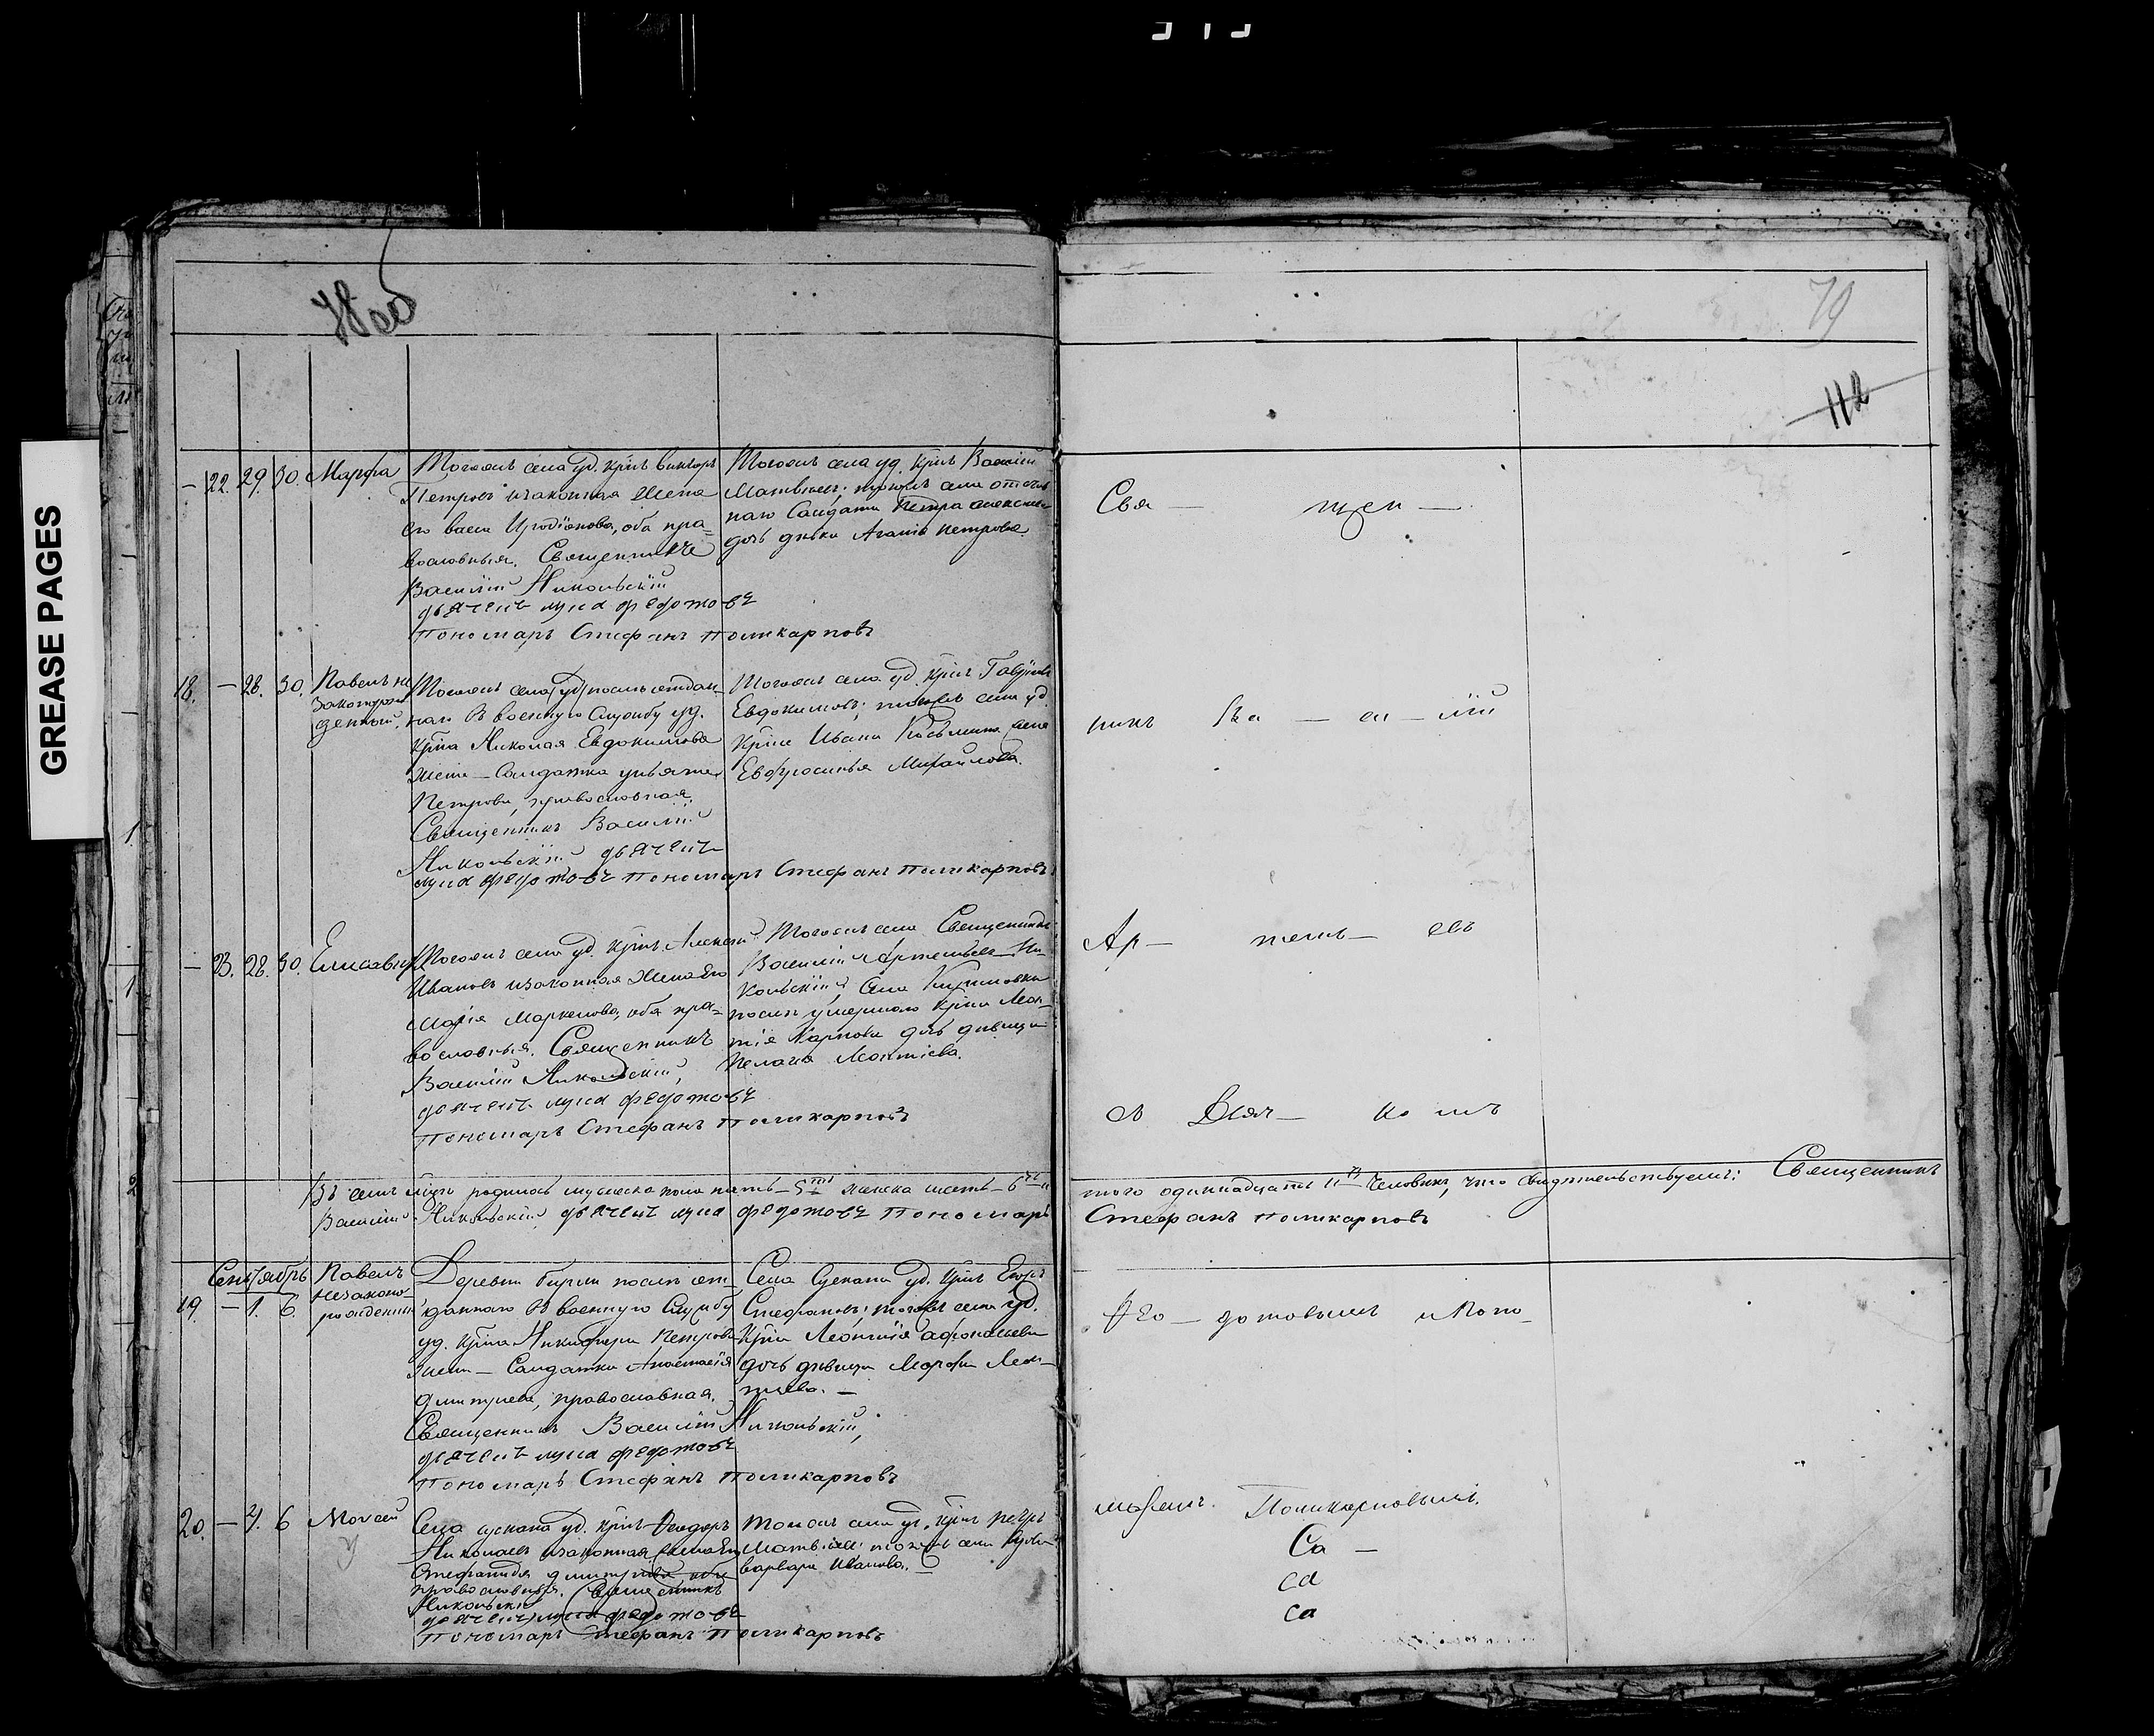 GREASE PAGES
78 об
79
112
— 22. 29. 30. Марфа
Тогожъ села уд. крнъ Викторъ
Петровъ изаконная жена
его Васса Иродіонова, оба пра-
вославныя. Священникъ
Василій Никольскій
дьячекъ лука федотовъ
пономарь Стефанъ поликарповъ
Тогожъ села уд. крнъ Василій
Матвѣевъ; тогожъ села
Солдата Петра
дочь дѣвка Петрова.
18. — 28. 30. Павелъ не
законорож
денный.
Тогожъ села уд. послѣ отдан-
наго въ военную службу уд.
крна Николая Евдокимова
жена — Солдатка
Петрова, православная.
Священникъ Василій
Никольскій дьячекъ
лука федотовъ пономарь Стефанъ поликарповъ
Тогожъ села уд. крнъ
Евдокимовъ; тогожъ села уд.
крна Ивана жена
Евфросинья Михайлова.
— 23. 28. 30. Елисавета
Тогожъ села уд. крнъ Алексей
Ивановъ изаконная жена его
Марія Маркелова, оба пра-
вославныя. Священникъ
Василій Никольскій,
дьячекъ лука федотовъ
пономарь Стефанъ поликарповъ
Тогожъ села Священникъ
Василій Артемьевъ Ни-
кольскій; села
послѣ умершаго крна Леон-
тія Карпова дочь дѣвица
Пелагія Леонтіева.
Въ семъ мцѣ родилось мужеска пола пять — 5ть женска шесть — 6ть и
Василій Никольскій, дьячекъ лука федотовъ пономарь
Сентябрь
19. — 1. 6. Павелъ
незаконо-
рожденный
Деревни послѣ от-
даннаго въ военную службу
уд. крна Никифора Петрова
жена — Солдатка Анастасія
Дмитріева, православная.
Священникъ Василій Никольскій,
дьячекъ лука федотовъ
пономарь Стефанъ поликарповъ
Села Сускана уд. крнъ Егоръ
Стефановъ; тогожъ села уд.
крна Леонтія Афонасьева
дочь дѣвица Марфа Леон-
тіева. —
20. — 4. 6 Моисей
Села сускана уд. крнъ Феодоръ
Николаевъ изаконная жена его
Стефанида Дмитріева оба
православныя. Священникъ
Никольскій
дьячекъ лука федотовъ
пономарь Стефанъ поликарповъ
Тогожъ села уд. крнъ Петръ
Матвѣевъ; тогожъ села
варвара Иванова. —
Свя — щен —
никъ Ва — си — лій
Ар — темь — евъ
съ Дьяч — ко мъ
того одинадцать 11ть человѣкъ, что свидѣтельствуемъ: Священникъ
Стефанъ поликарповъ
Фео — дотовымъ и Поно —
маремъ Поликарповымъ.
Са —
са
са